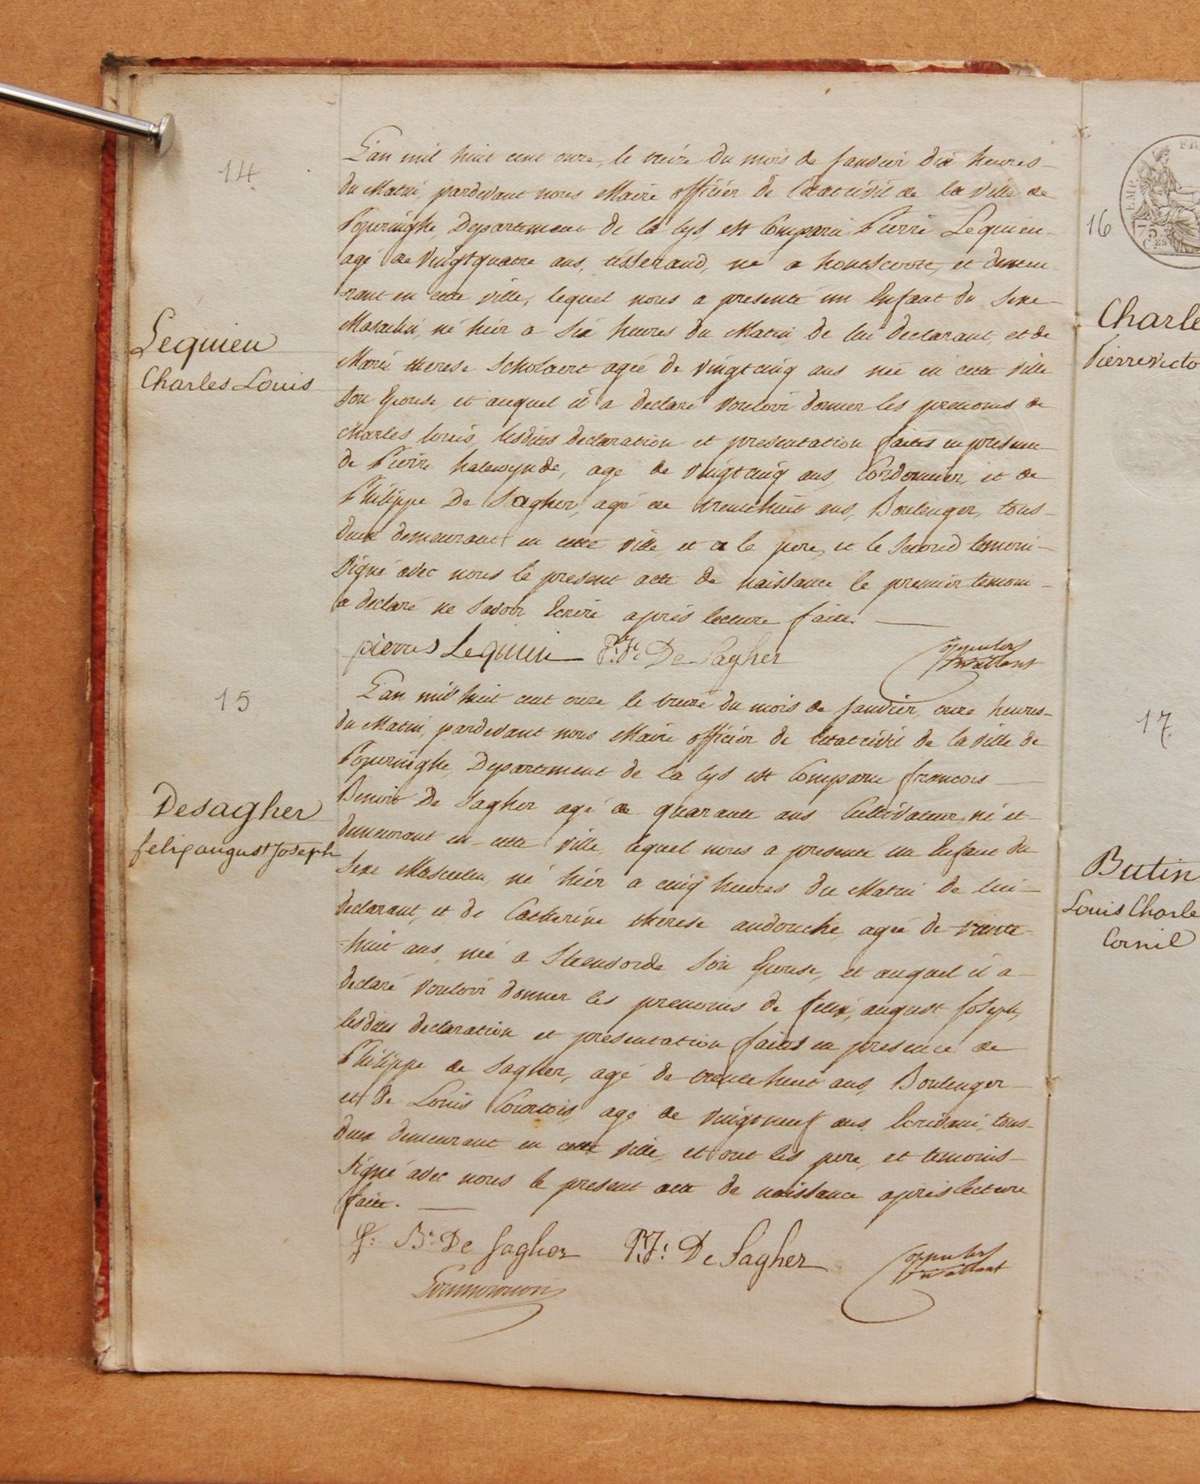 14
Lequieu
Charles Louis
L'an mil huit cent onze, le treize du mois de Janvier dix heures
du Matin, pardevant nous Maire officier de l'etat civil de la ville de
Poperinghe Departement de la Lys est Comparu Pierre Lequieu
agé de vingtquatre ans, tisserand, né a hontscoote, et demeu
rant en cette ville, lequel nous a presenté un Enfant du Sexe
Masculin, né hier a Six heures du Matin de lui declarant, et de
Marie therese Scholaert agée de vingtcinq ans née en cette ville
Son Epouse, et auquel il a declaré vouloir donner les prenoms de
charles louis, lesdites declaration et presentation faites en presence
de Pierre halewynde, agé de vingtcinq ans, Cordonnier, et de
Philippe De Sagher, agé de trentehuit ans, Boulenger, tous
deux demeurant en cette ville et a le pere, et le Second temoin
Signé avec nous le present acte de naissance le premier temoin
a declaré ne Savoir Ecrire après lecture faite.
pierre Lequieu P: J: De Sagher
15
Desagher
felix august Joseph
L'an mil huit cent onze le treize du mois de Janvier, onze heures
du Matin, pardevant nous Maire officier de l'etat civil de la ville de
Poperinghe Departement de la Lys est Comparu francois
Benoit De Sagher agé de quarante ans Cultivateur, né et
demeurant en cette ville, lequel nous a presenté un Enfant du
Sexe Masculin né hier a cinq heures du Matin de lui
declarant, et de Catherine therese audouche, agée de trente
huit ans, née a Steenvorde Son Epouse, et auquel il a
declaré vouloir donner les prenoms de felix, august Joseph,
lesdites declaration et presentation faites en presence de
Philippe de Sagher, agé de trentehuit ans, Boulenger
et de Louis Courtois agé de vingtneuf ans, tous
deux demeurant en cette ville, et ont les pere, et temoins
Signé avec nous le present acte de naissance après lecture
faite.
f: B: De Sagher P: J: De Sagher
16
Charle
Pierre victo
17
Butin
Louis Charle
Cornil